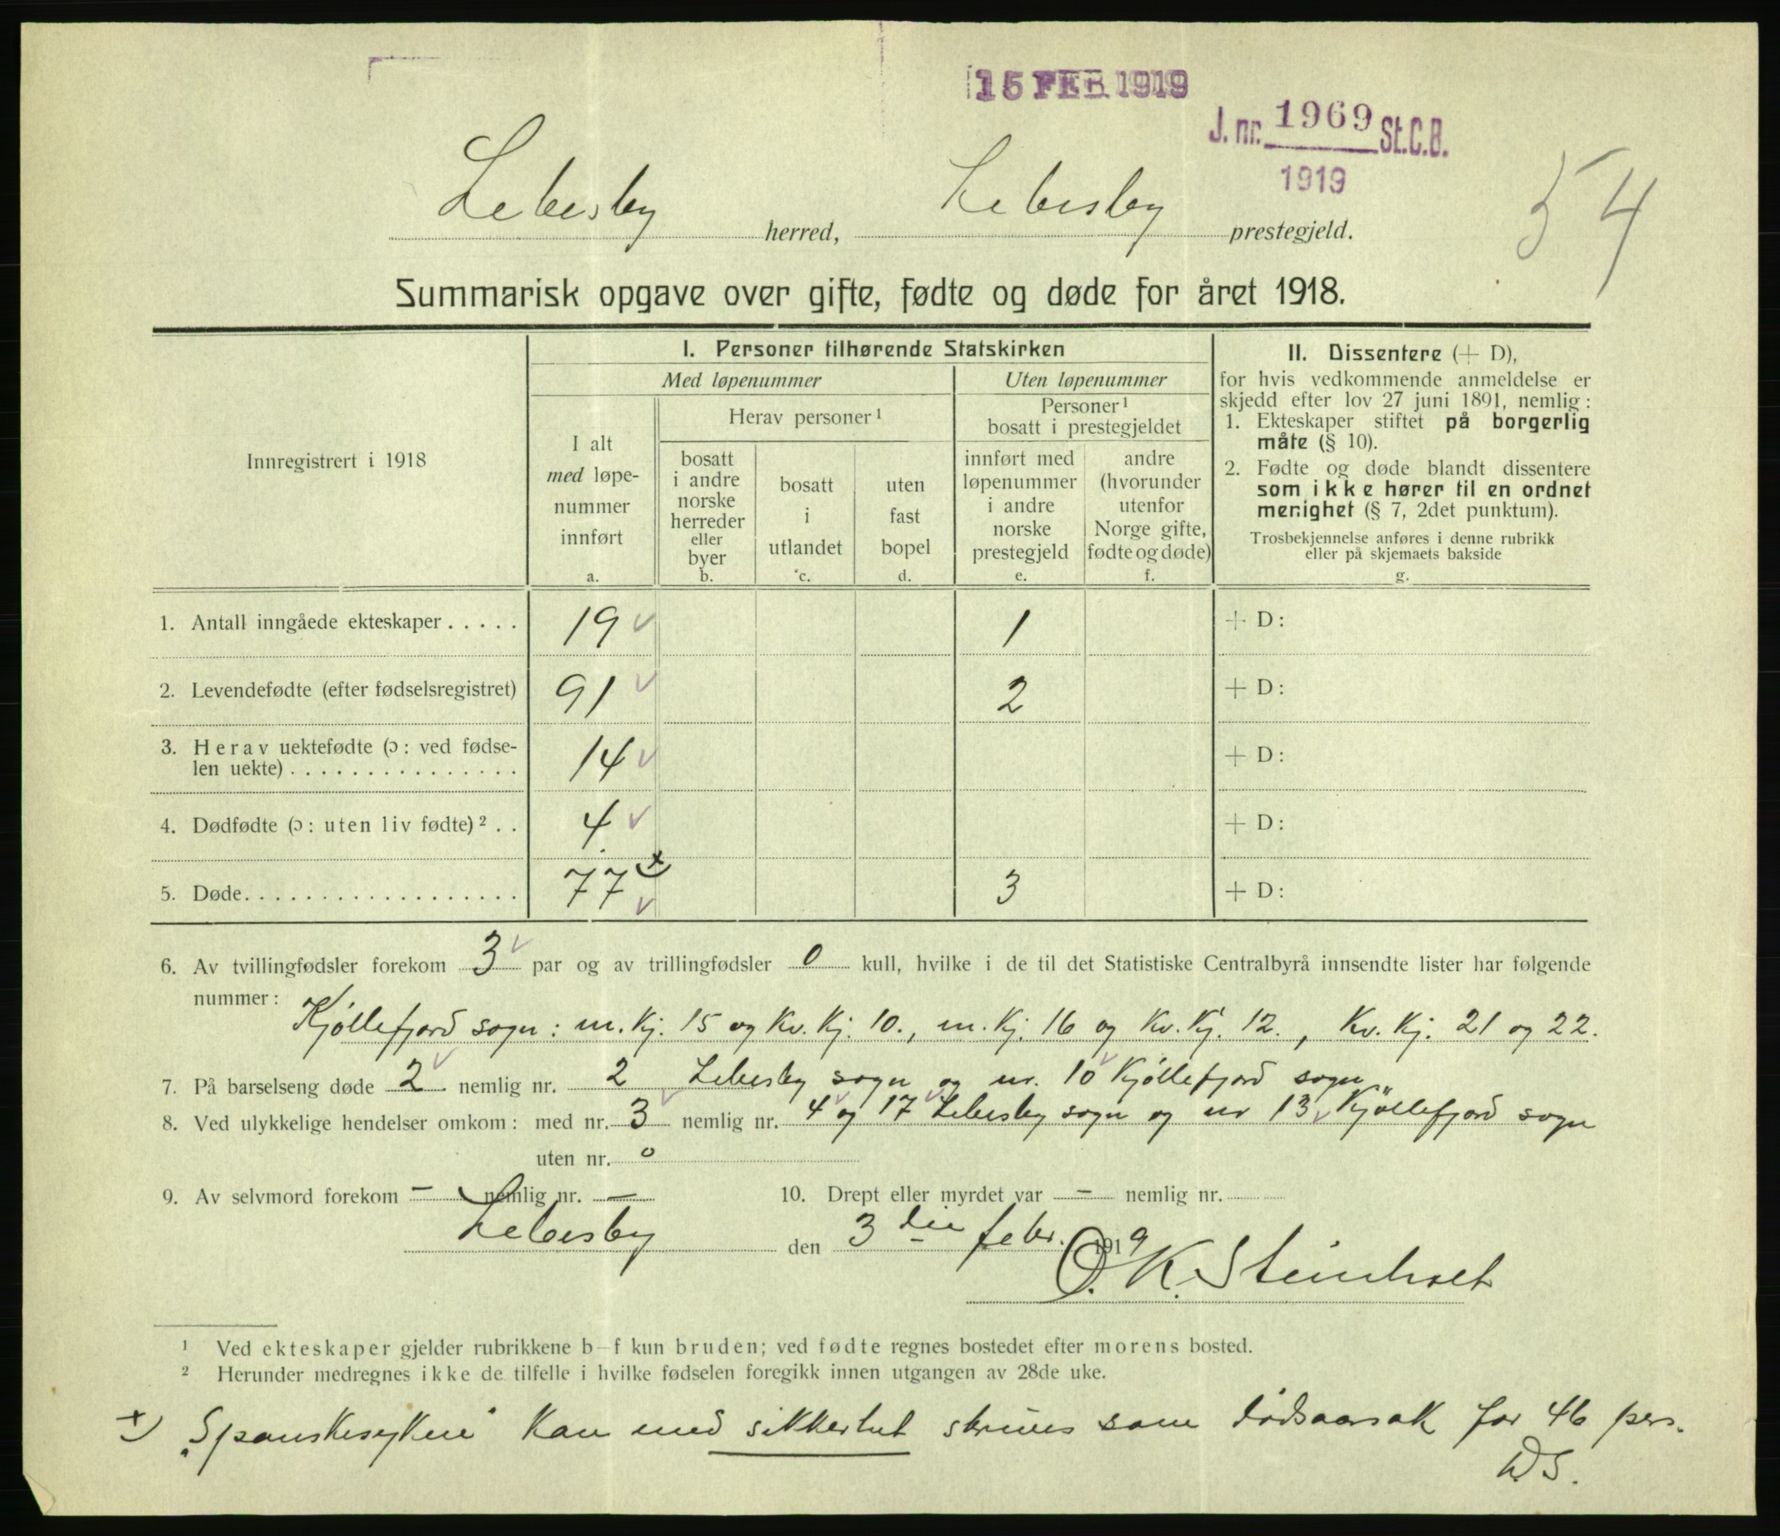 15 FEB 1919
J. nr. 1969 St.C.B.
1919
54
Lebesby herred, Lebesby prestegjeld.
Summarisk opgave over gifte, fødte og døde for året 1918.
Innregistrert i 1918
I. Personer tilhørende Statskirken
Med løpenummer
Uten løpenummer
I alt
med løpe-
nummer
innført
a.
Herav personer¹
bosatt
i andre
norske
herreder
eller
byer
b.
bosatt
i
utlandet
c.
uten
fast
bopel
d.
Personer¹
bosatt i prestegjeldet
innført med
løpenummer
i andre
norske
prestegjeld
e.
andre
(hvorunder
utenfor
Norge gifte,
fødte og døde)
f.
II. Dissentere (+ D),
for hvis vedkommende anmeldelse er
skjedd efter lov 27 juni 1891, nemlig:
1. Ekteskaper stiftet på borgerlig
måte (§ 10).
2. Fødte og døde blandt dissentere
som ikke hører til en ordnet
menighet (§ 7, 2det punktum).
Trosbekjennelse anføres i denne rubrikk
eller på skjemaets bakside
g.
1. Antall inngåede ekteskaper..... 19 1 + D:
2. Levendefødte (efter fødselsregistret) 91 2 + D:
3. Herav uektefødte (ɔ: ved fødse-
len uekte)............... 14 + D:
4. Dødfødte (ɔ: uten liv fødte)².. 4 + D:
5. Døde.................. 77 x) 3 + D:
6. Av tvillingfødsler forekom 3 par og av trillingfødsler 0 kull, hvilke i de til det Statistiske Centralbyrå innsendte lister har følgende
nummer: Kjøllefjord sogn: m. Kj. 15 og Kv. Kj. 10., m. Kj. 16 og Kv. Kj. 12., Kv. Kj. 21 og 22.
7. På barselseng døde 2 nemlig nr. 2 Lebesby sogn og nr. 10 Kjøllefjord sogn
8. Ved ulykkelige hendelser omkom: med nr. 3 nemlig nr. 4 og 17 Lebesby sogn og nr 13 Kjøllefjord sogn
uten nr. 0
9. Av selvmord forekom – nemlig nr. – 10. Drept eller myrdet var – nemlig nr.
Lebesby den 3 die febr. 1919
O. K. Steinholt
¹ Ved ekteskaper gjelder rubrikkene b–f kun bruden; ved fødte regnes bostedet efter morens bosted.
² Herunder medregnes ikke de tilfelle i hvilke fødselen foregikk innen utgangen av 28de uke.
x) „Spanskesyken" kan med sikkerhet skrives som dødsaarsak for 46 pers.
D S.